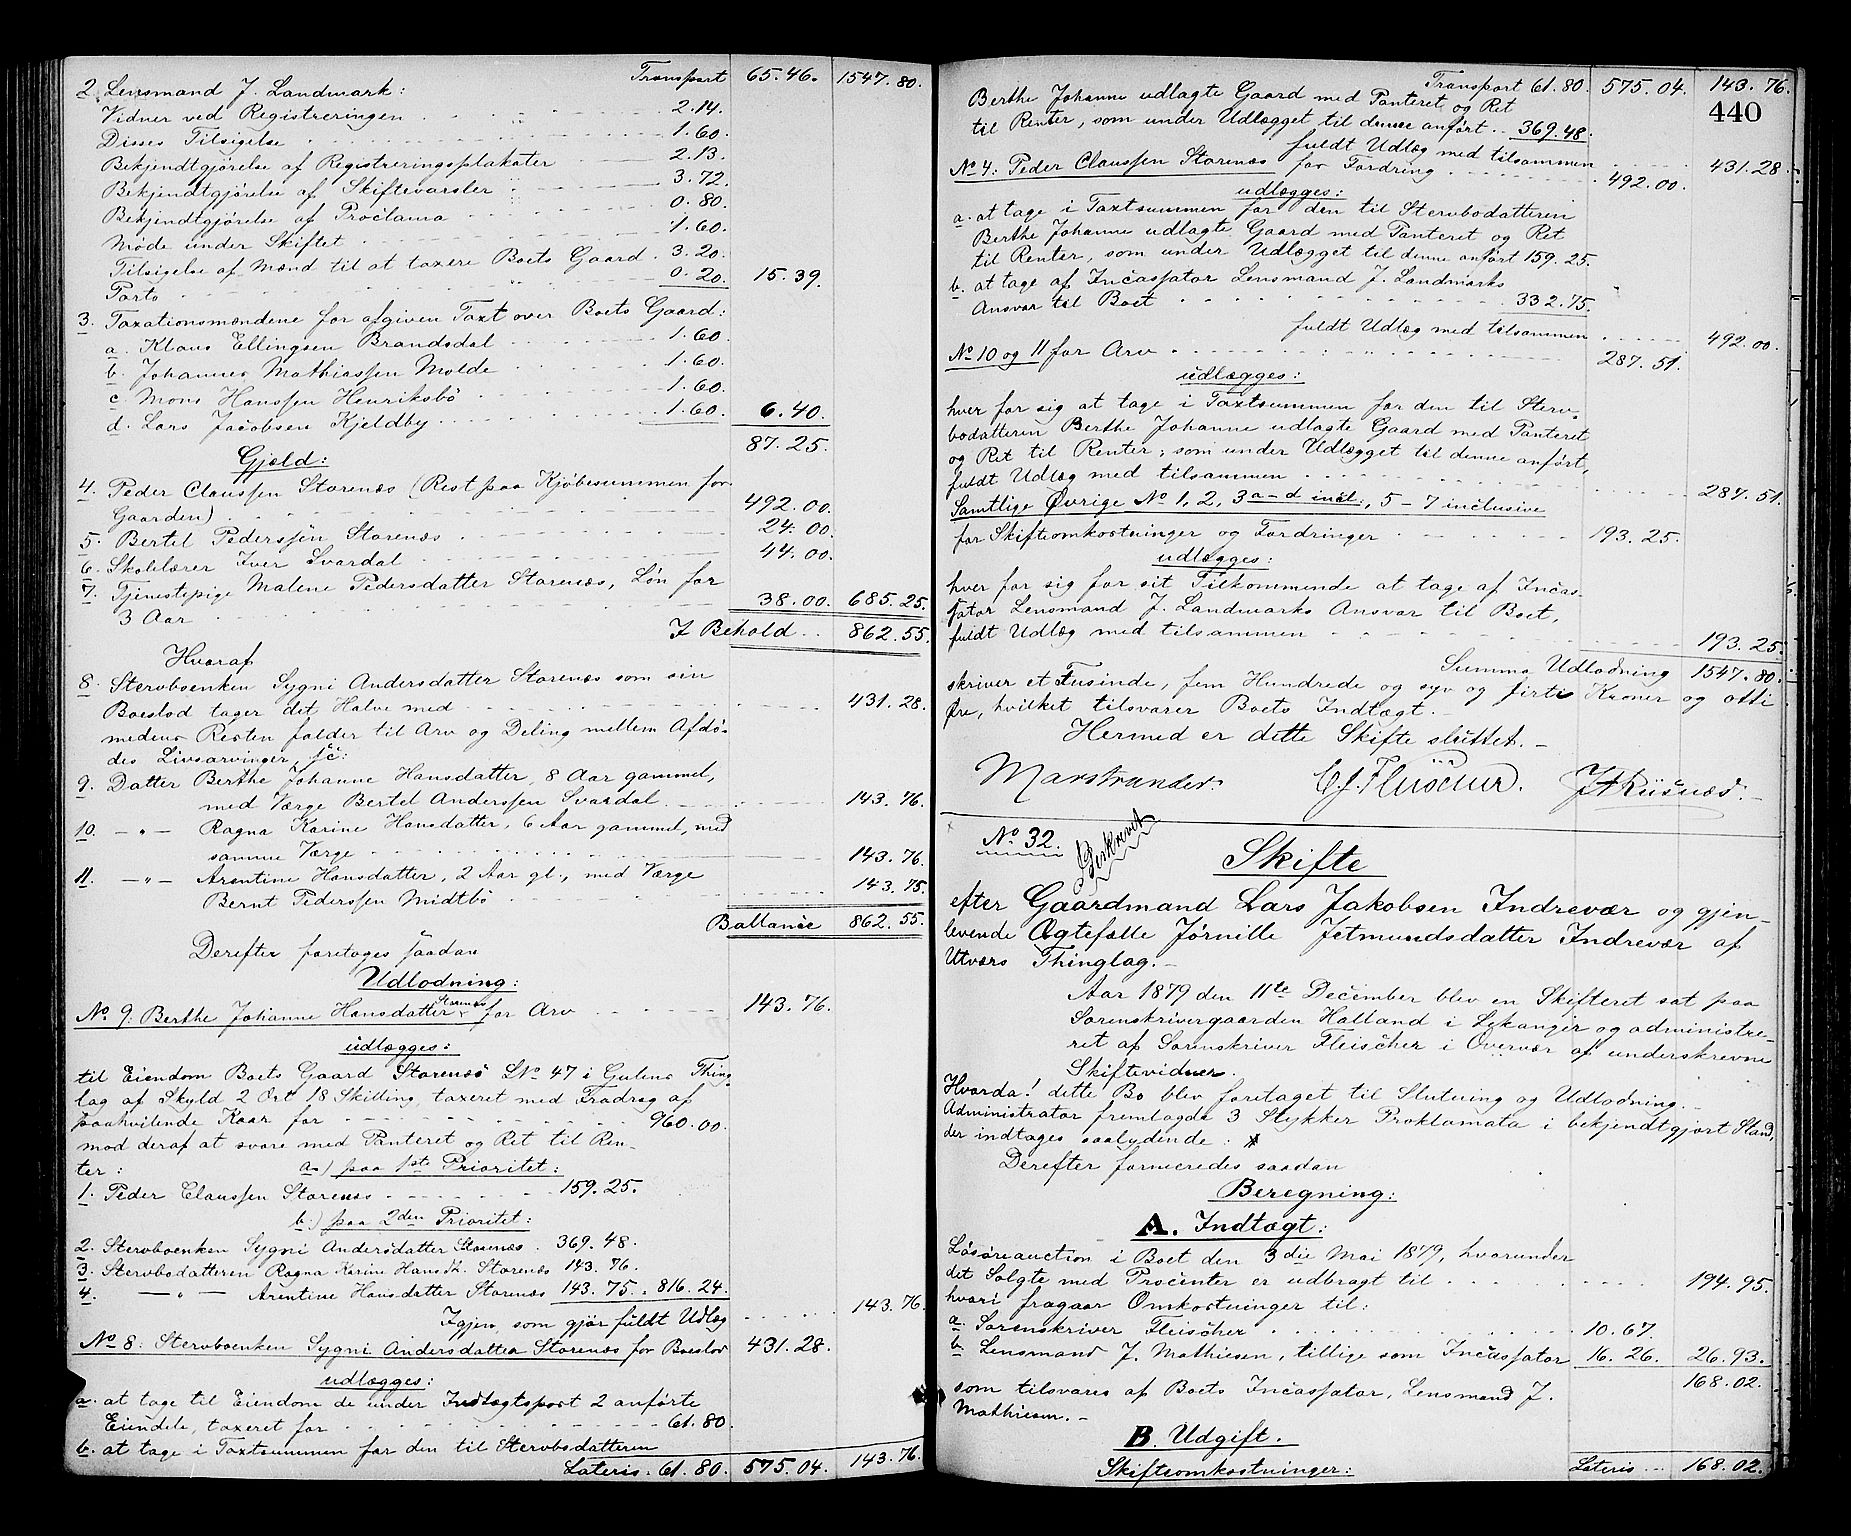 Transport 65.46. 1547.80.
2. Lensmand J. Landmark:
Vidner ved Registreringen 2.14.
Disses Tilsigelse 1.60.
Bekjendtgjørelse af Registreringsplakater 2.13.
Bekjendtgjørelse af Skiftevarsler 3.72.
Bekjendtgjørelse af Proclama 0.80.
Møde under Skiftet 1.60.
Tilsigelse af Mænd til at taxere Boets Gaard 3.20.
Porto 0.20. 15.39.
3. Taxationsmændene for afgiven Taxt over Boets Gaard:
a. Klaus Ellingsen Brandsdal 1.60.
b. Johannes Mathiassen Molde 1.60.
c. Mons Hanssen Henriksbø 1.60.
d. Lars Jacobsen Kjeldby 1.60. 6.40.
87.25.
Gjæld:
4. Peder Claussen Storenæs (Rest paa Kjøbesummen for
Gaarden) 492.00.
5. Bertel Pederssen Storenæs 24.00.
6. Skolelærer Iver Svardal 44.00.
7. Tjenestepige Malene Pedersdatter Storenæs, Løn for
3 Aar 38.00. 685.25.
I Behold 862.55.
Hvoraf
8. Stervboenken Sygni Andersdatter Storenæs som sin
Boeslod tager det Halve med 431.28.
medens Resten falder til Arv og Deling mellem Afdø-
des Livsarvinger, sc:
9. Datter Berthe Johanne Hansdatter, 8 Aar gammel,
med Værge Bertel Anderssen Svardal 143.76.
10. —„— Ragna Karine Hansdatter, 6 Aar gammel, med
samme Værge 143.76.
11. —„— Arentine Hansdatter, 2 Aar gl., med Værge
Bernt Pederssen Midtbø 143.75.
Ballance 862.55.
Derefter foretoges saadan
Udlodning:
No 9: Berthe Johanne Hansdatter Storenæs for Arv 143.76.
udlægges:
til Eiendom Boets Gaard Storenæs L No 47 i Gulens Thing
lag af Skyld 2 Ort 18 Skilling, taxeret med Fradrag af
paahvilende Kaar for 960.00.
mod deraf at svare med Panteret og Ret til Ren-
ter: a) paa 1ste Prioritet:
1. Peder Claussen Storenæs 159.25.
b.) paa 2den Prioritet:
2. Stervboenken Sygni Andersdatter Storenæs. 369.48.
3. Stervbodatteren Ragna Karine Hansdt. Storenæs 143.76.
4. —„— Arentine Hansdatter Storenæs 143.75. 816.24.
Igjen, som gjør fuldt Udlæg 143.76.
No 8: Stervboenken Sygni Andersdatter Storenæs for Boeslod 431.28.
udlægges:
a. at tage til Eiendom de under Indtægtspost 2 anførte
Eiendele, taxeret for 61.80.
b. at tage i Taxtsummen for den til Stervbodatteren
Lateris. 61.80. 575.04. 143.76.
Transport 61.80. 575.04. 143.76.
440
Berthe Johanne udlagte Gaard med Panteret og Ret
til Renter, som under Udlægget til denne anført 369.48.
fuldt Udlæg med tilsammen 431.28.
No 4: Peder Claussen Storenæs for Fordring 492.00.
udlægges:
a. at tage i Taxtsummen for den til Stervbodatteren
Berthe Johanne udlagte Gaard med Panteret og Ret
til Renter, som under Udlægget til denne anført 159.25.
b. at tage af Incassator Lensmand J. Landmarks
Ansvar til Boet 332.75.
fuldt Udlæg med tilsammen 492.00.
No 10 og 11 for Arv 287.51.
udlægges:
hver for sig at tage i Taxtsummen for den til Sterv-
bodatteren Berthe Johanne udlagte Gaard med Panteret
og Ret til Renter, som under Udlægget til denne anført,
fuldt Udlæg med tilsammen 287.51.
Samtlige Øvrige No 1, 2, 3 a-d incl:, 5 - 7 inclusive
for Skifteomkostninger og Fordringer 193.25.
udlægges:
hver for sig for sit Tilkommende at tage af Incas-
sator Lensmand J. Landmarks Ansvar til Boet,
fuldt Udlæg med tilsammen 193.25.
Summa Udlodning 1547.80.
skriver et Tusinde, fem Hundrede og syv og firti Kroner og otti
Øre, hvilket tilsvarer Boets Indtægt.
Hermed er dette Skifte sluttet.
Marstrander. C. J. Fleischer.
No 32. Beskrevet
Skifte
efter Gaardmand Lars Jakobsen Indrevær og gjen-
levende Ægtefælle Jørnille Jetmundsdatter Indrevær af
Utværs Thinglag.
Aar 1879 den 11te December blev en Skifteret sat paa
Sorenskrivergaarden Halland i Lekanger og administre-
ret af Sorenskriver Fleischer i Overvær af underskrevne
Skiftevidner.
Hvorda! dette Bo blev foretaget til Slutning og Udlodning.
Administrator fremlagde 3 Stykker Proklamata i bekjendtgjort Stand,
der indtages saalydende:
Derefter formeredes saadan
Beregning:
A. Indtægt:
Løsøreauction i Boet den 3die Mai 1879, hvorunder
det Solgte med Procenter er udbragt til 194.95.
hvori fragaar Omkostninger til:
a. Sorenskriver Fleischer 10.67.
b. Lensmand J. Mathiesen, tillige som Incassator 16.26. 26.93.
168.02.
som tilsvares af Boets Incassator, Lensmand J.
Mathiesen.
B. Udgift.
Skifteomkostninger:
Lateris 168.02.